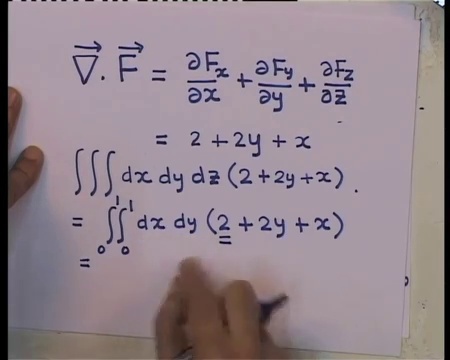 ∇⃗ . F⃗ = ∂Fx/∂x + ∂Fy/∂y + ∂Fz/∂z
= 2 + 2y + x
∫∫∫ dx dy dz (2 + 2y + x) .
= ∫₀¹ ∫₀¹ dx dy (2 + 2y + x)
=